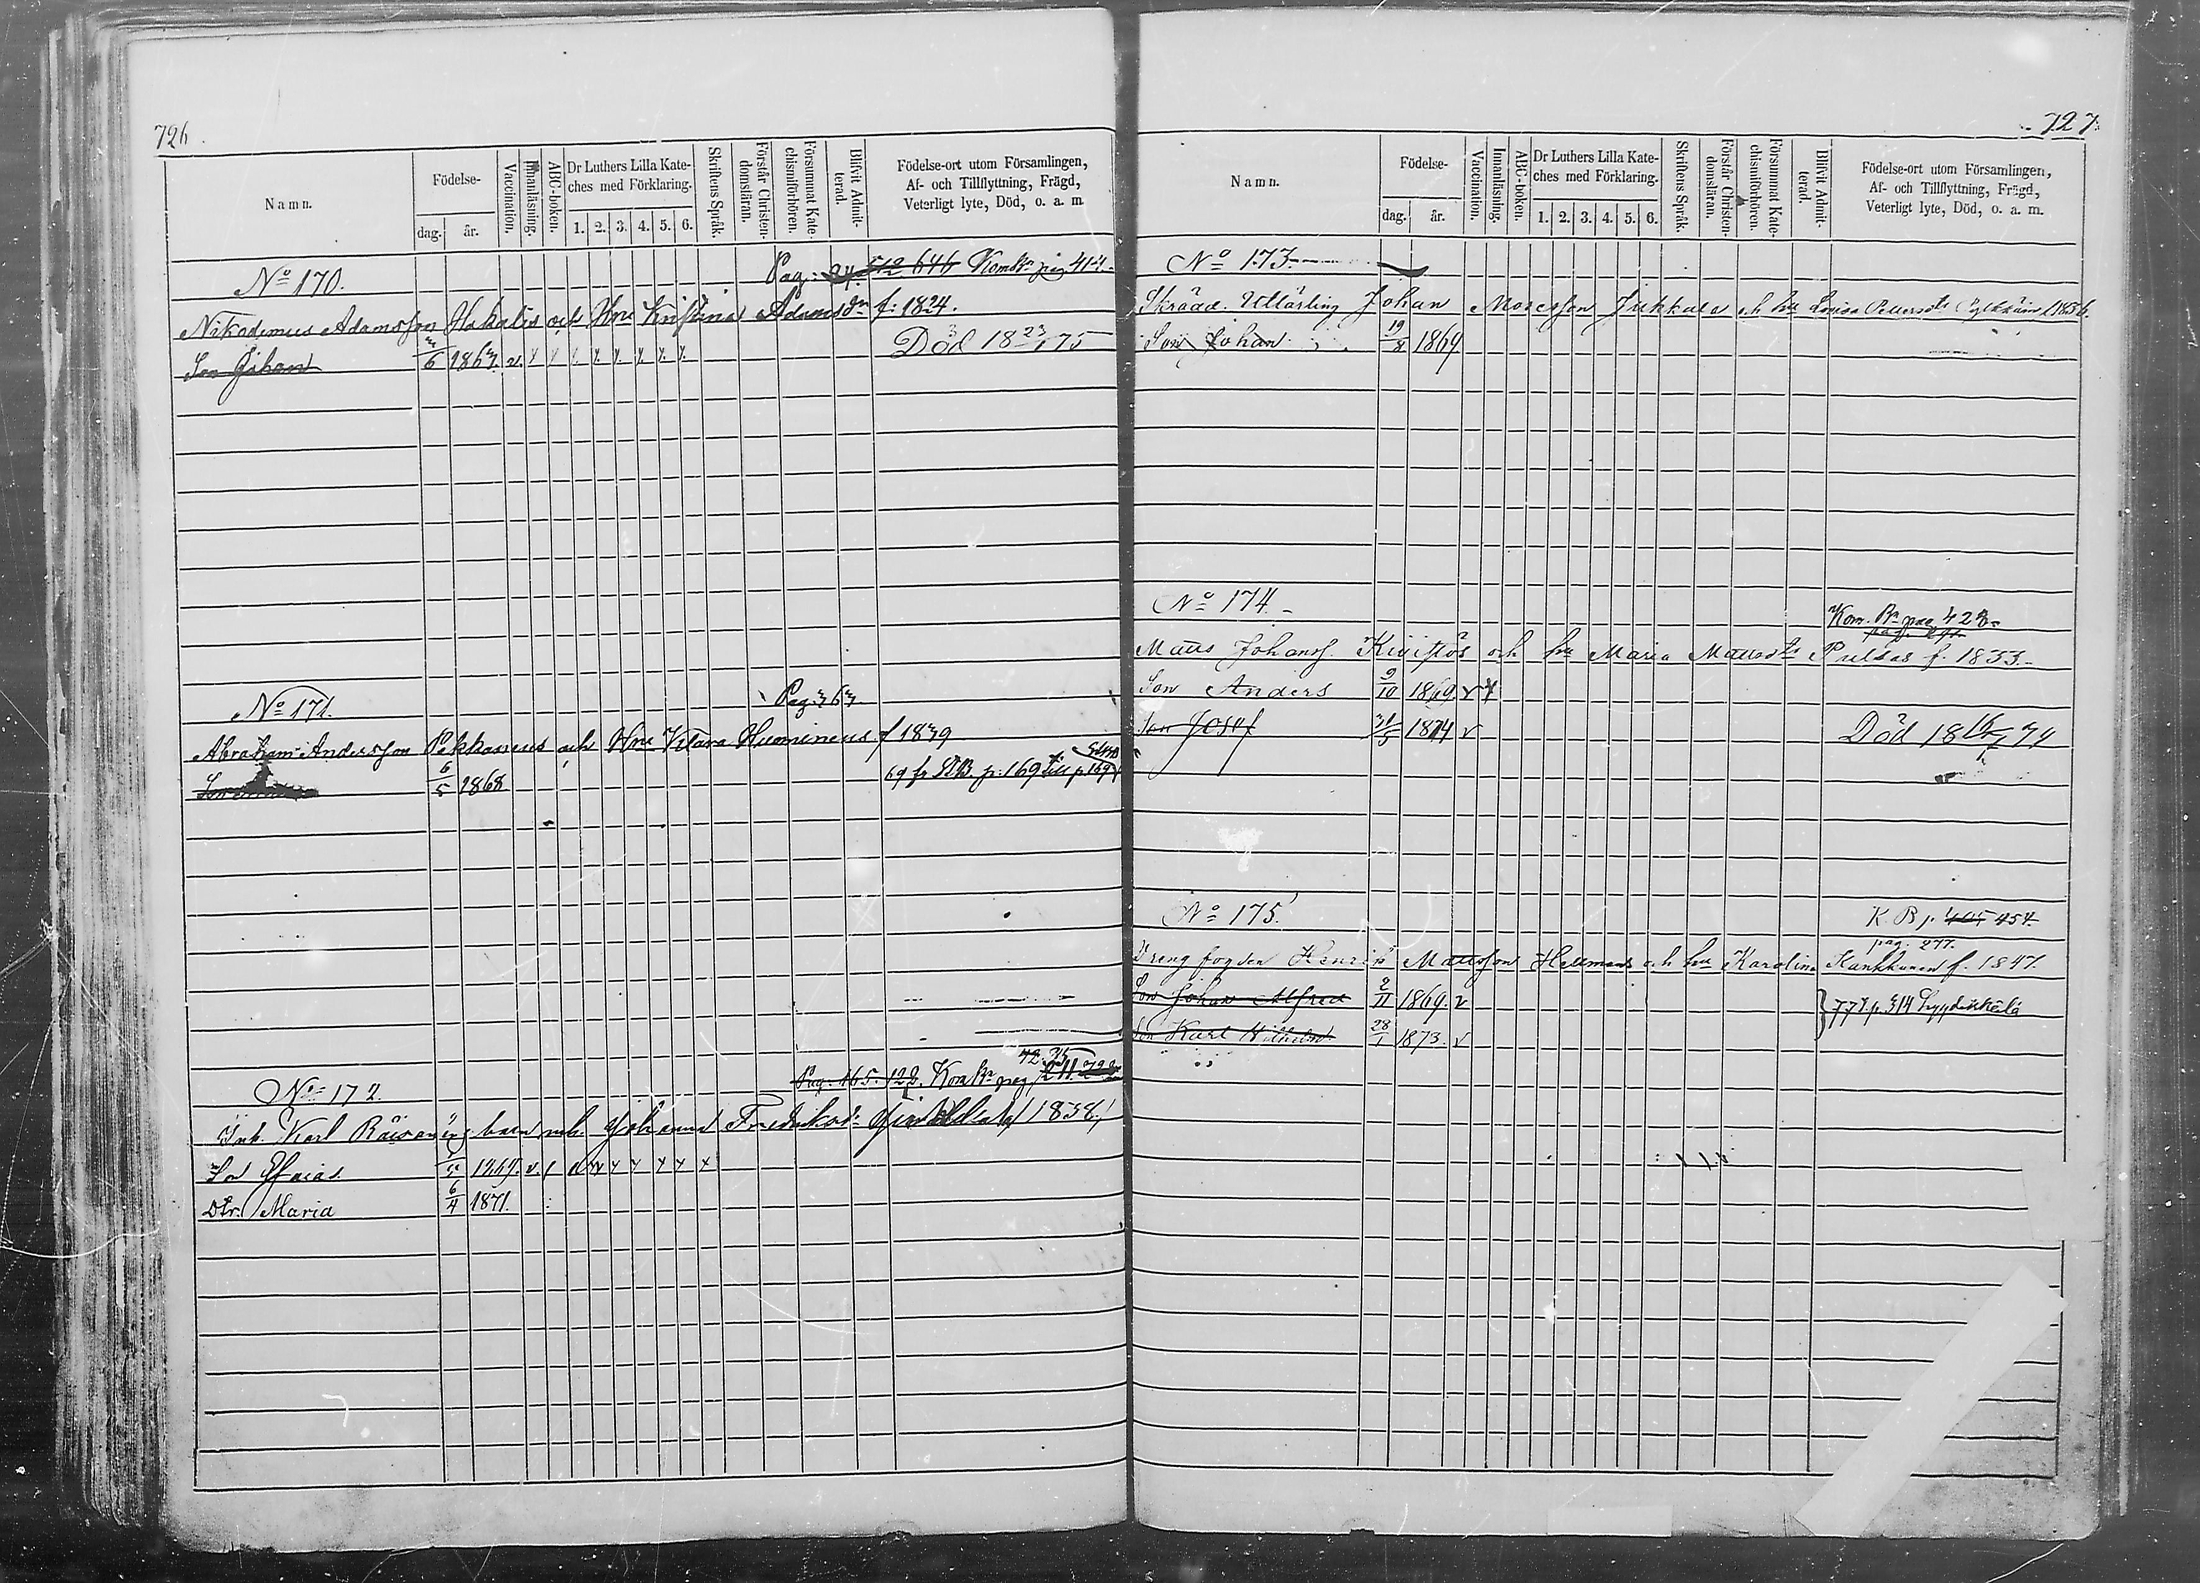 726.
Namn.
Födelse-
dag.
år.
Vaccination.
Innanläsning.
ABC-boken.
Dr Luthers Lilla Kate-
ches med Förklaring.
1. 2. 3. 4. 5. 6.
Skriftens Språk.
Förstår Christen-
domsläran.
Försummat Kate-
chismiförhören.
Blifvit Admit-
terad.
Födelse-ort utom Församlingen,
Af- och Tillflyttning, Frägd,
Veterligt lyte, Död, o. a. m
No 170. Pag: 512 646 pag 414
Nikodemus Adamsson Hakalis och Hns Kristina Adamsdr f: 1824.
Son Johan 6 1867. v. Död 18 23/3 75
No 171. Pag: 367.
Abraham Andersson Pekkaneus och Hns Klara Huomineus f 1839
Son 6/5 1868 69 fr p: 169 Till p 169
No 172. Pag. 165. 122. pag
Inh. Karl Räisänens barn m. h. Johanna Fredriksdr 1838,
Son Esaias 1867. v.
Dtr. Maria 6/4 1871.
727.
Namn.
Födelse-
dag.
år.
Vaccination.
Innanläsning.
ABC-boken.
Dr Luthers Lilla Kate-
ches med Förklaring.
1. 2. 3. 4. 5. 6.
Skriftens Språk.
Förstår Christen-
domsläran.
Försummat Kate-
chismiförhören.
Blifvit Admit-
terad.
Födelse-ort utom Församlingen,
Af- och Tillflyttning, Frägd,
Veterligt lyte, Död, o. a. m.
No 173.
Skrädd. Utlärling Johan Mosesson Jukkala och hu Lovisa Pettersdr 1836.
Son Johan 19/8 1869.
No 174. Kom. Bn pag 428
Matts Johanss. Kivistös och hu Maria Mattsdtr Pulkas f. 1833.
Son Anders 9/10 1869. v
Son Josef 31/5 1874 v Död 18 16/7 74
No 175. K. B p. 405 454.
pag. 277.
Drengfogden Henrik Mattsson Hellmans och hu Karolina Kankkunen f. 1847.
Son Johan Alfred 2/11 1869. v 77 p. 314
Son Karl Wilhelm 28/1 1873. v